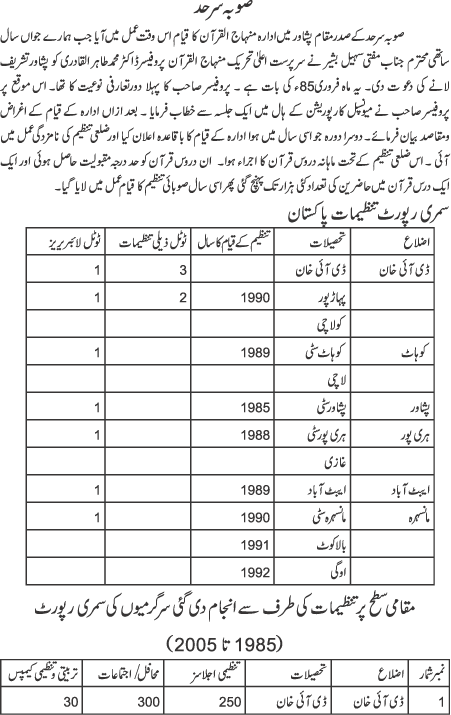 صوبہ سرحد
صوبہ سرحد کے صدر مقام پشاور میں ادارہ منہاج القرآن کا قیام اس وقت عمل میں آیا جب ہمارے جواں سال
ساتھی محترم جناب مفتی سہیل بشیر نے سرپرست اعلیٰ تحریک منہاج القرآن پروفیسر ڈاکٹر محمد طاہر القادری کو پشاور تشریف
لانے کی دعوت دی۔ یہ ماہ فروری 85ء کی بات ہے ۔ پروفیسر صاحب کا پہلا دور تعارفی نوعیت کا تھا۔ اس موقع پر
پروفیسر صاحب نے میونسپل کارپوریشن کے ہال میں ایک جلسہ سے خطاب فرمایا ۔ بعد ازاں ادارہ کے قیام کے اغراض
ومقاصد بیان فرمائے۔ دوسرا دورہ جو اسی سال میں ہوا ادارہ کے قیام کا باقاعدہ اعلان کیا اور ضلعی تنظیم کی نامزدگی عمل میں
آئی ۔ اس ضلعی تنظیم کے تحت ماہانہ دروس قرآن کا اجراء ہوا۔ ان دروس قرآن کو حد درجہ مقبولیت حاصل ہوئی اور ایک
ایک درس قرآن میں حاضرین کی تعداد کئی ہزار تک پہنچ گئی پھر اسی سال صوبائی تنظیم کا قیام عمل میں لایا گیا۔
سمری رپورٹ تنظیمات پاکستان
اضلاع تحصیلات تنظیم کے قیام کا سال ٹوٹل ذیلی تنظیمات ٹوٹل لائبریریز
ڈی آئی خان ڈی آئی خان 3 1
پہاڑپور 1990 2 1
کولاچی
کوہاٹ کوہاٹ سٹی 1989 1
لاچی
پشاور پشاور سٹی 1985 1
ہری پور ہری پور سٹی 1988 1
غازی
ایبٹ آباد ایبٹ آباد 1989 1
مانسہرہ مانسہرہ سٹی 1990 1
بالاکوٹ 1991
اوگی 1992
مقامی سطح پر تنظیمات کی طرف سے انجام دی گئی سرگرمیوں کی سمری رپورٹ
(1985 تا 2005)
نمبر شمار اضلاع تحصیلات تنظیمی اجلاسز محافل/اجتماعات تربیتی و تنظیمی کیمپس
1 ڈی آئی خان ڈی آئی خان 250 300 30